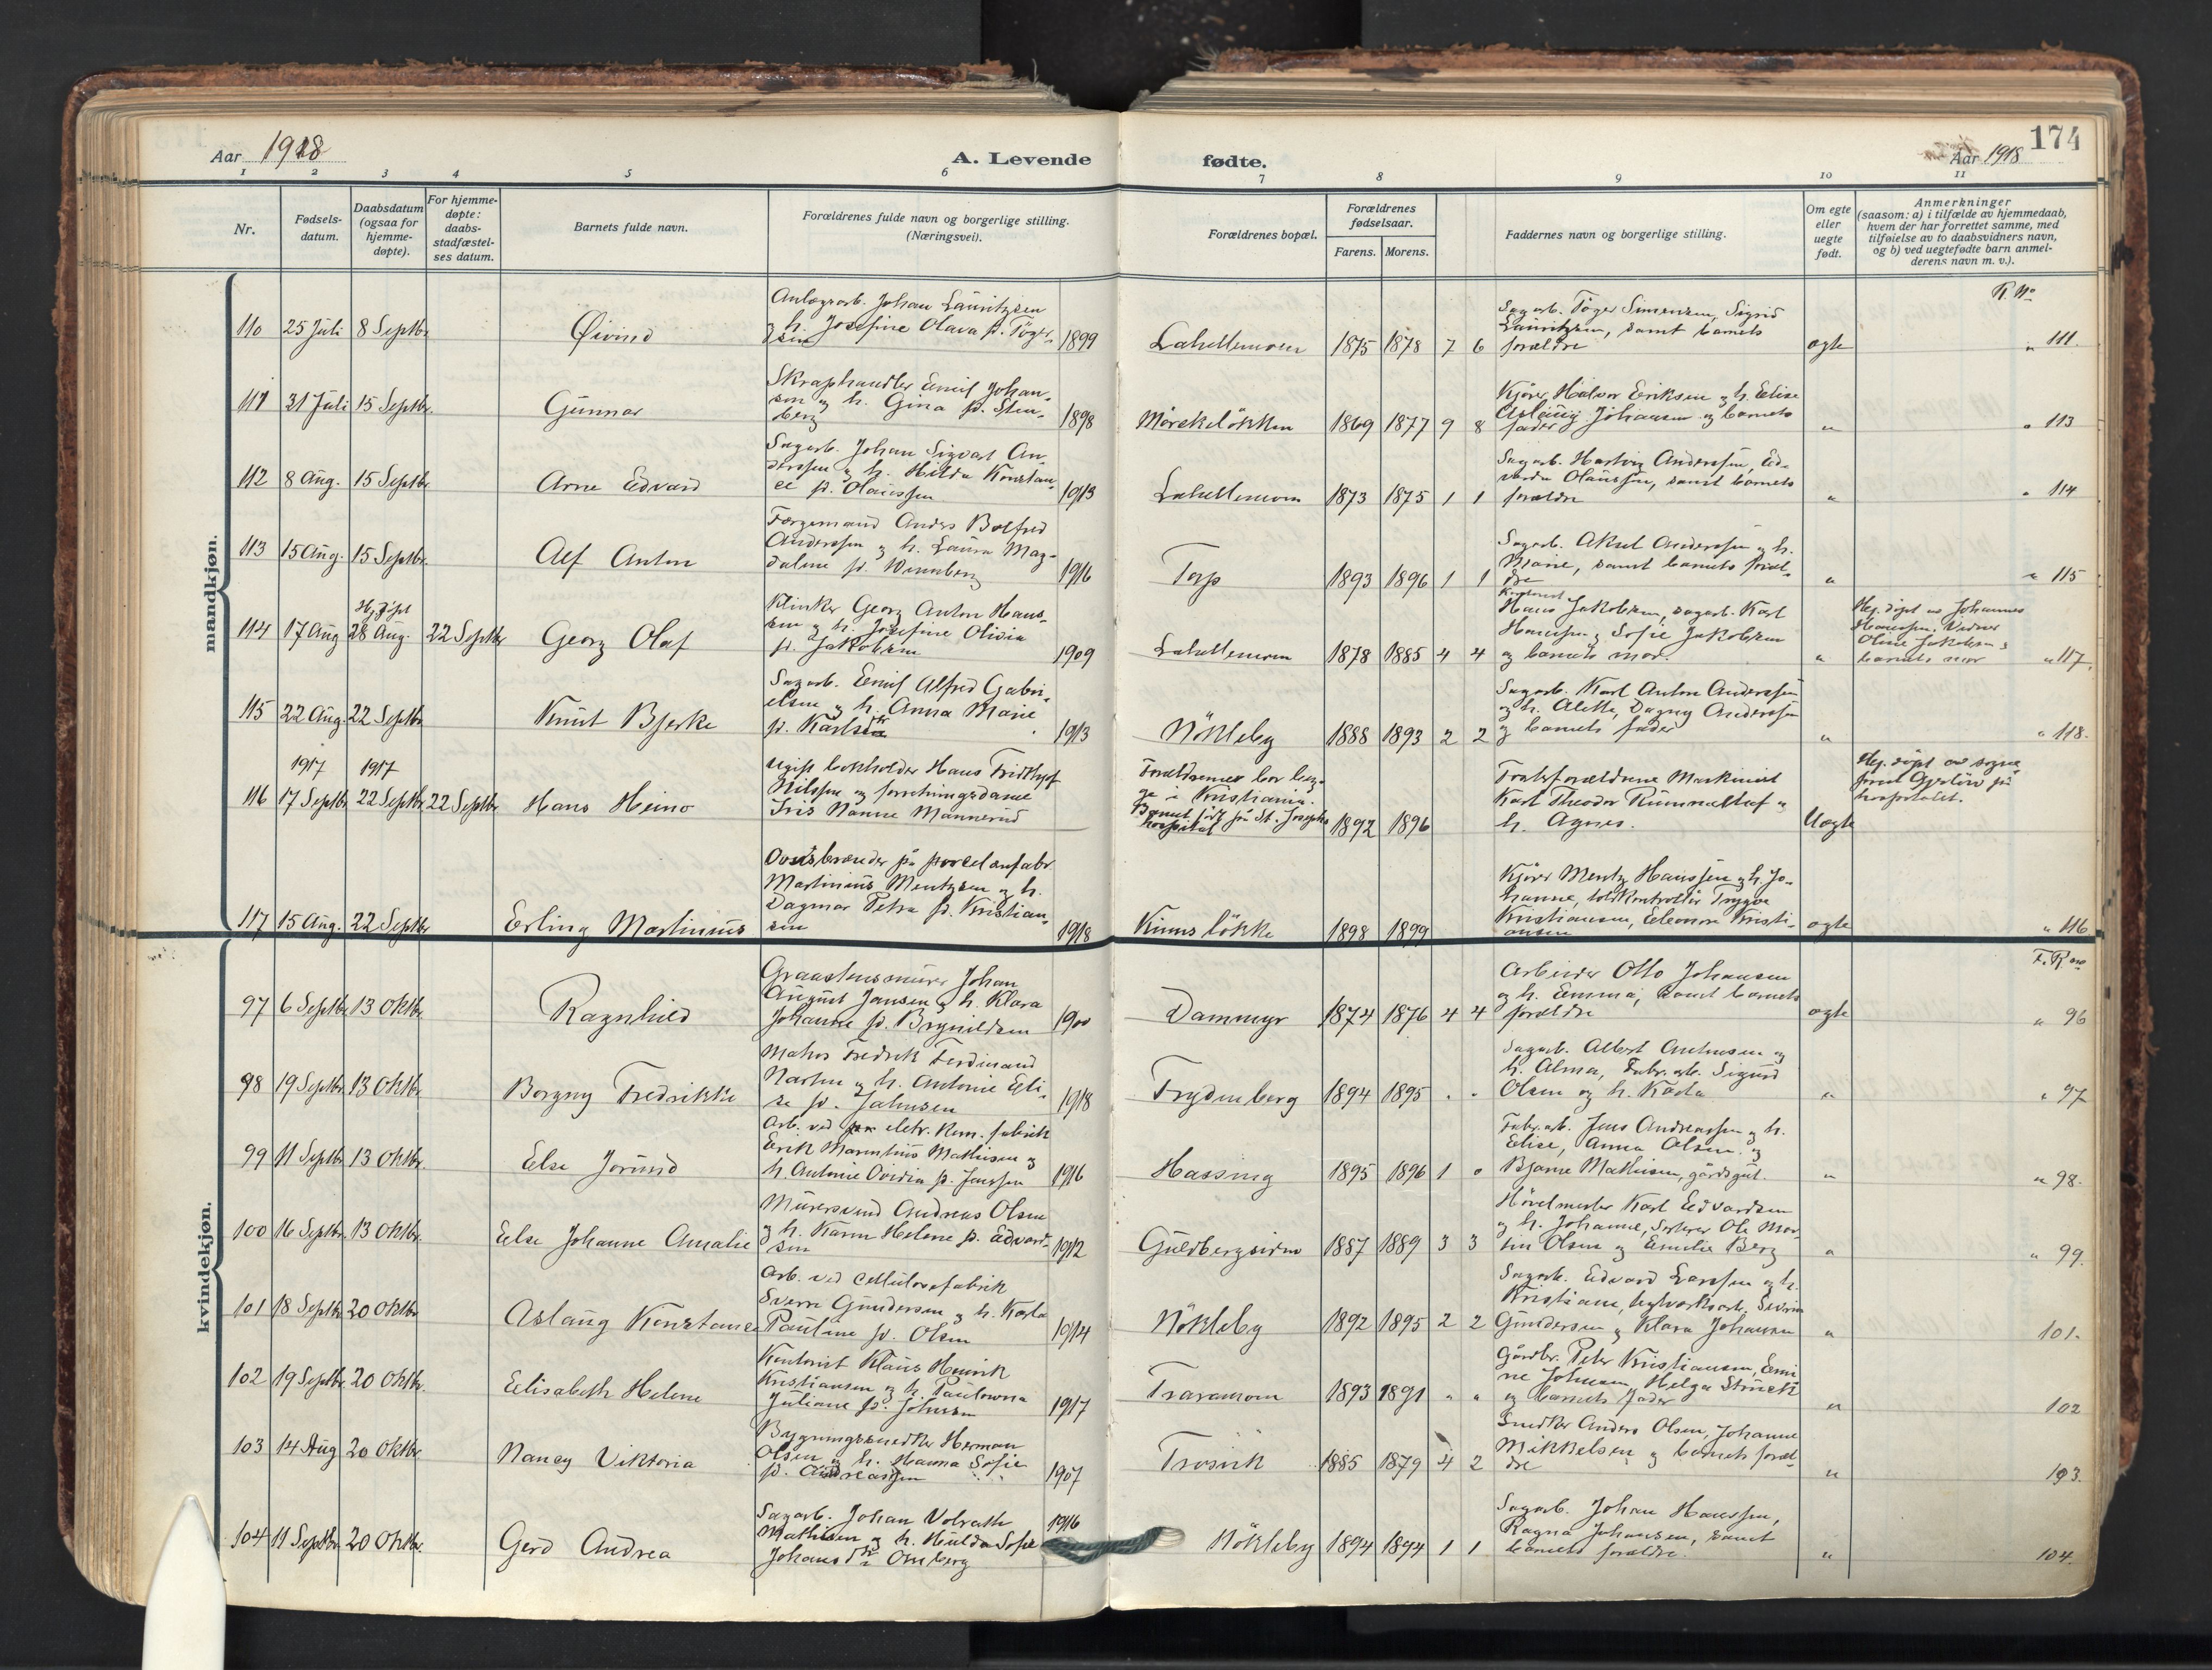 Aar 1918
A. Levende
fødte.
Aar 1918
174
1 2 3 4 5 6 7 8 9 10 11
Nr.
Fødsels-
datum.
Daabsdatum
(ogsaa for
hjemme-
døpte).
For hjemme-
døpte:
daabs-
stadfæstel-
ses datum.
Barnets fulde navn.
Forældrenes fulde navn og borgerlige stilling.
(Næringsvei).
Forældrenes bopæl.
Forældrenes
fødselsaar.
Farens. Morens.
Faddernes navn og borgerlige stilling.
Om egte
eller
uegte
født.
Anmerkninger
(saasom: a) i tilfælde av hjemmedaab,
hvem der har forrettet samme, med
tilføielse av to daabsvidners navn,
og b) ved uegtefødte barn anmel-
derens navn m. v.).
mandkjøn.
110 25 Juli 8 Septbr. Øivind
Johan Lauritzsen
og h. Josefine Olava f. Tøger-
sen 1899
1875 1878 7 6
Sagarb. Tøger Simensen, Sigrid
Lauritzsen, samt barnets
forældre
egte
" 111.
111 31 Juli 15 Septbr. Gunnar
Skraphandler Emil Johan-
sen og h. Gina f. Sten-
berg 1898
Mørckeløkken 1869 1877 9 8
Kjører Halvor Eriksen og h. Elise
Aslaug Johansen og barnets
fader
"
" 113
112 8 Aug. 15 Septbr. Arne Edvard
Sagarb. Johan Sigvart An-
derssen og h. Hilda Konstan-
ce f. Olaussen 1913
1873 1875 1 1
Sagarb. Hartvig Anderssen, Ed-
varda Olaussen, samt barnets
forældre
"
" 114
113 15 Aug. 15 Septbr. Alf Anton
Færgemand Anders Botfred
Anderssen og h. Laura Mag-
dalene f. Wennberg 1916
Torp 1893 1896 1 1
Sagarb. Aksel Anderssen og h.
Marie, samt barnets foræl-
dre
"
" 115
114 17 Aug. Hj. døpt 28 Aug. 22 Septbr. Georg Olaf
Klinker Georg Anton Hans-
sen og h. Josefine Olivia
f. Jakobsen 1909
1878 1885 4 4
Hans Jakobsen, sagarb. Karl
Hanssen, Sofie Jakobsen
og barnets mor.
"
Hj. døpt av Johannes
Hanssen. Vidner
Oline Jakobsen,
barnets mor
" 117.
115 22 Aug. 22 Septbr. Knut Bjerke
Sagarb. Emil Alfred Gabri-
elsen og h. Anna Marie
f. Karlsdtr 1913
Nökleby 1888 1893 2 2
Sagarb. Karl Anton Anderssen
og h. Alette, Dagny Anderssen
og barnets fader
"
" 118.
1917 1917
116 17 Septbr. 22 Septbr. 22 Septbr. Hans Heino
Ugift bokholder Hans Fridthjof
Nilssen og forretningsdame
Iris Nanne Mannerud
Forældrenes bor beg-
ge i Kristiania.
Barnet født på St. Josephs
hospital 1892 1896
Fosterforældrene Maskinist
Karl Theodor og
h. Agnes.
Uegte
Hj. døpt av sogne
på
hospitalet.
117 15 Aug. 22 Septbr. Erling Martinius
Ovnsbrænder på porcelænfabr.
Martinius Mentzsen og h.
Dagmar Petra f. Kristian-
sen 1918
1898 1899
Kjører Mentz Hanssen og h. Jo-
hanne, toldkontrollør Trygve
Kristiansen, Eleonora Kristi-
ansen
egte
" 116.
kvindekjøn.
97 6 Septbr. 13 Oktbr. Ragnhild
Graastensmurer Johan
August Jansen og h. Klara
Johanne f. Brynildsen 1900
Dammyr 1874 1876 4 4
Arbeider Otto Johansen
og h. Emma, samt barnets
forældre
egte
" 96
98 19 Septbr. 13 Oktbr. Borgny Fredrikke
Maler Fredrik Ferdinand
og h. Antonie Eli-
se f. Jahnsen 1918
Frydenberg 1894 1895 " "
Sagarb. Albert Antonsen og
h. Alma, Fabr. arb. Sigurd
Olsen og h. Karla
"
" 97
99 11 Septbr. 13 Oktbr. Else Jorund
Arb. ved elektr. kem. fabrik
Erik Marentius Mathisen og
h. Antonie Ovidia f. Jenssen 1916
Hassing 1895 1896 1 0
Fabr. arb. Jens Andreassen og h.
Elise, Anna Olsen og
Bjarne Mathisen, gårdsgut.
"
" 98.
100 16 Septbr. 13 Oktbr. Else Johanne Amalie
Murersvend Andreas Olsen
og h. Karen Helene f. Edvard-
sen 1912
1887 1889 3 3
Høvelmester Karl Edvardsen
og h. Johanne, Ole Mar-
tin Olsen og Emilie Berg
"
" 99.
101 18 Septbr. 20 Oktbr. Aslaug Konstance
Arb. ved cellulosefabrik
Sverre Gundersen og h. Karla
Pauline f. Olsen 1914
Nökleby 1892 1895 2 2
Sagarb. Edvard Larssen og h.
Kristiane, Severin
Gundersen og Klara Johansen
"
101.
102 19 Septbr. 20 Oktbr. Elisabeth Helene
Kontorist Klaus Henrik
Kristiansen og h. Paulowna
Juliane f. Johnsen 1917
Traramoen 1893 1891 " "
Gårdbr. Peter Kristiansen, Emi-
ne Johnsen, Helga
og barnets fader
"
102
103 14 Aug 20 Oktbr. Nancy Viktoria
Bygningssnedker Herman
Olsen og h. Hanna Sofie
f. Andreassen 1907
Trosvik 1885 1879 4 2
Snedker Anders Olsen, Johanne
Mikkelsen og barnets foræl-
dre
"
103.
104 11 Septbr. 20 Oktbr. Gerd Andrea
Sagarb. Johan Volrath
Mathisen og h. Hulda Sofie
Johansdtr Omberg 1916
Nökleby 1894 1894 1 1
Sagarb. Johan Hanssen,
Ragna Johansen, samt
barnets forældre.
"
104.